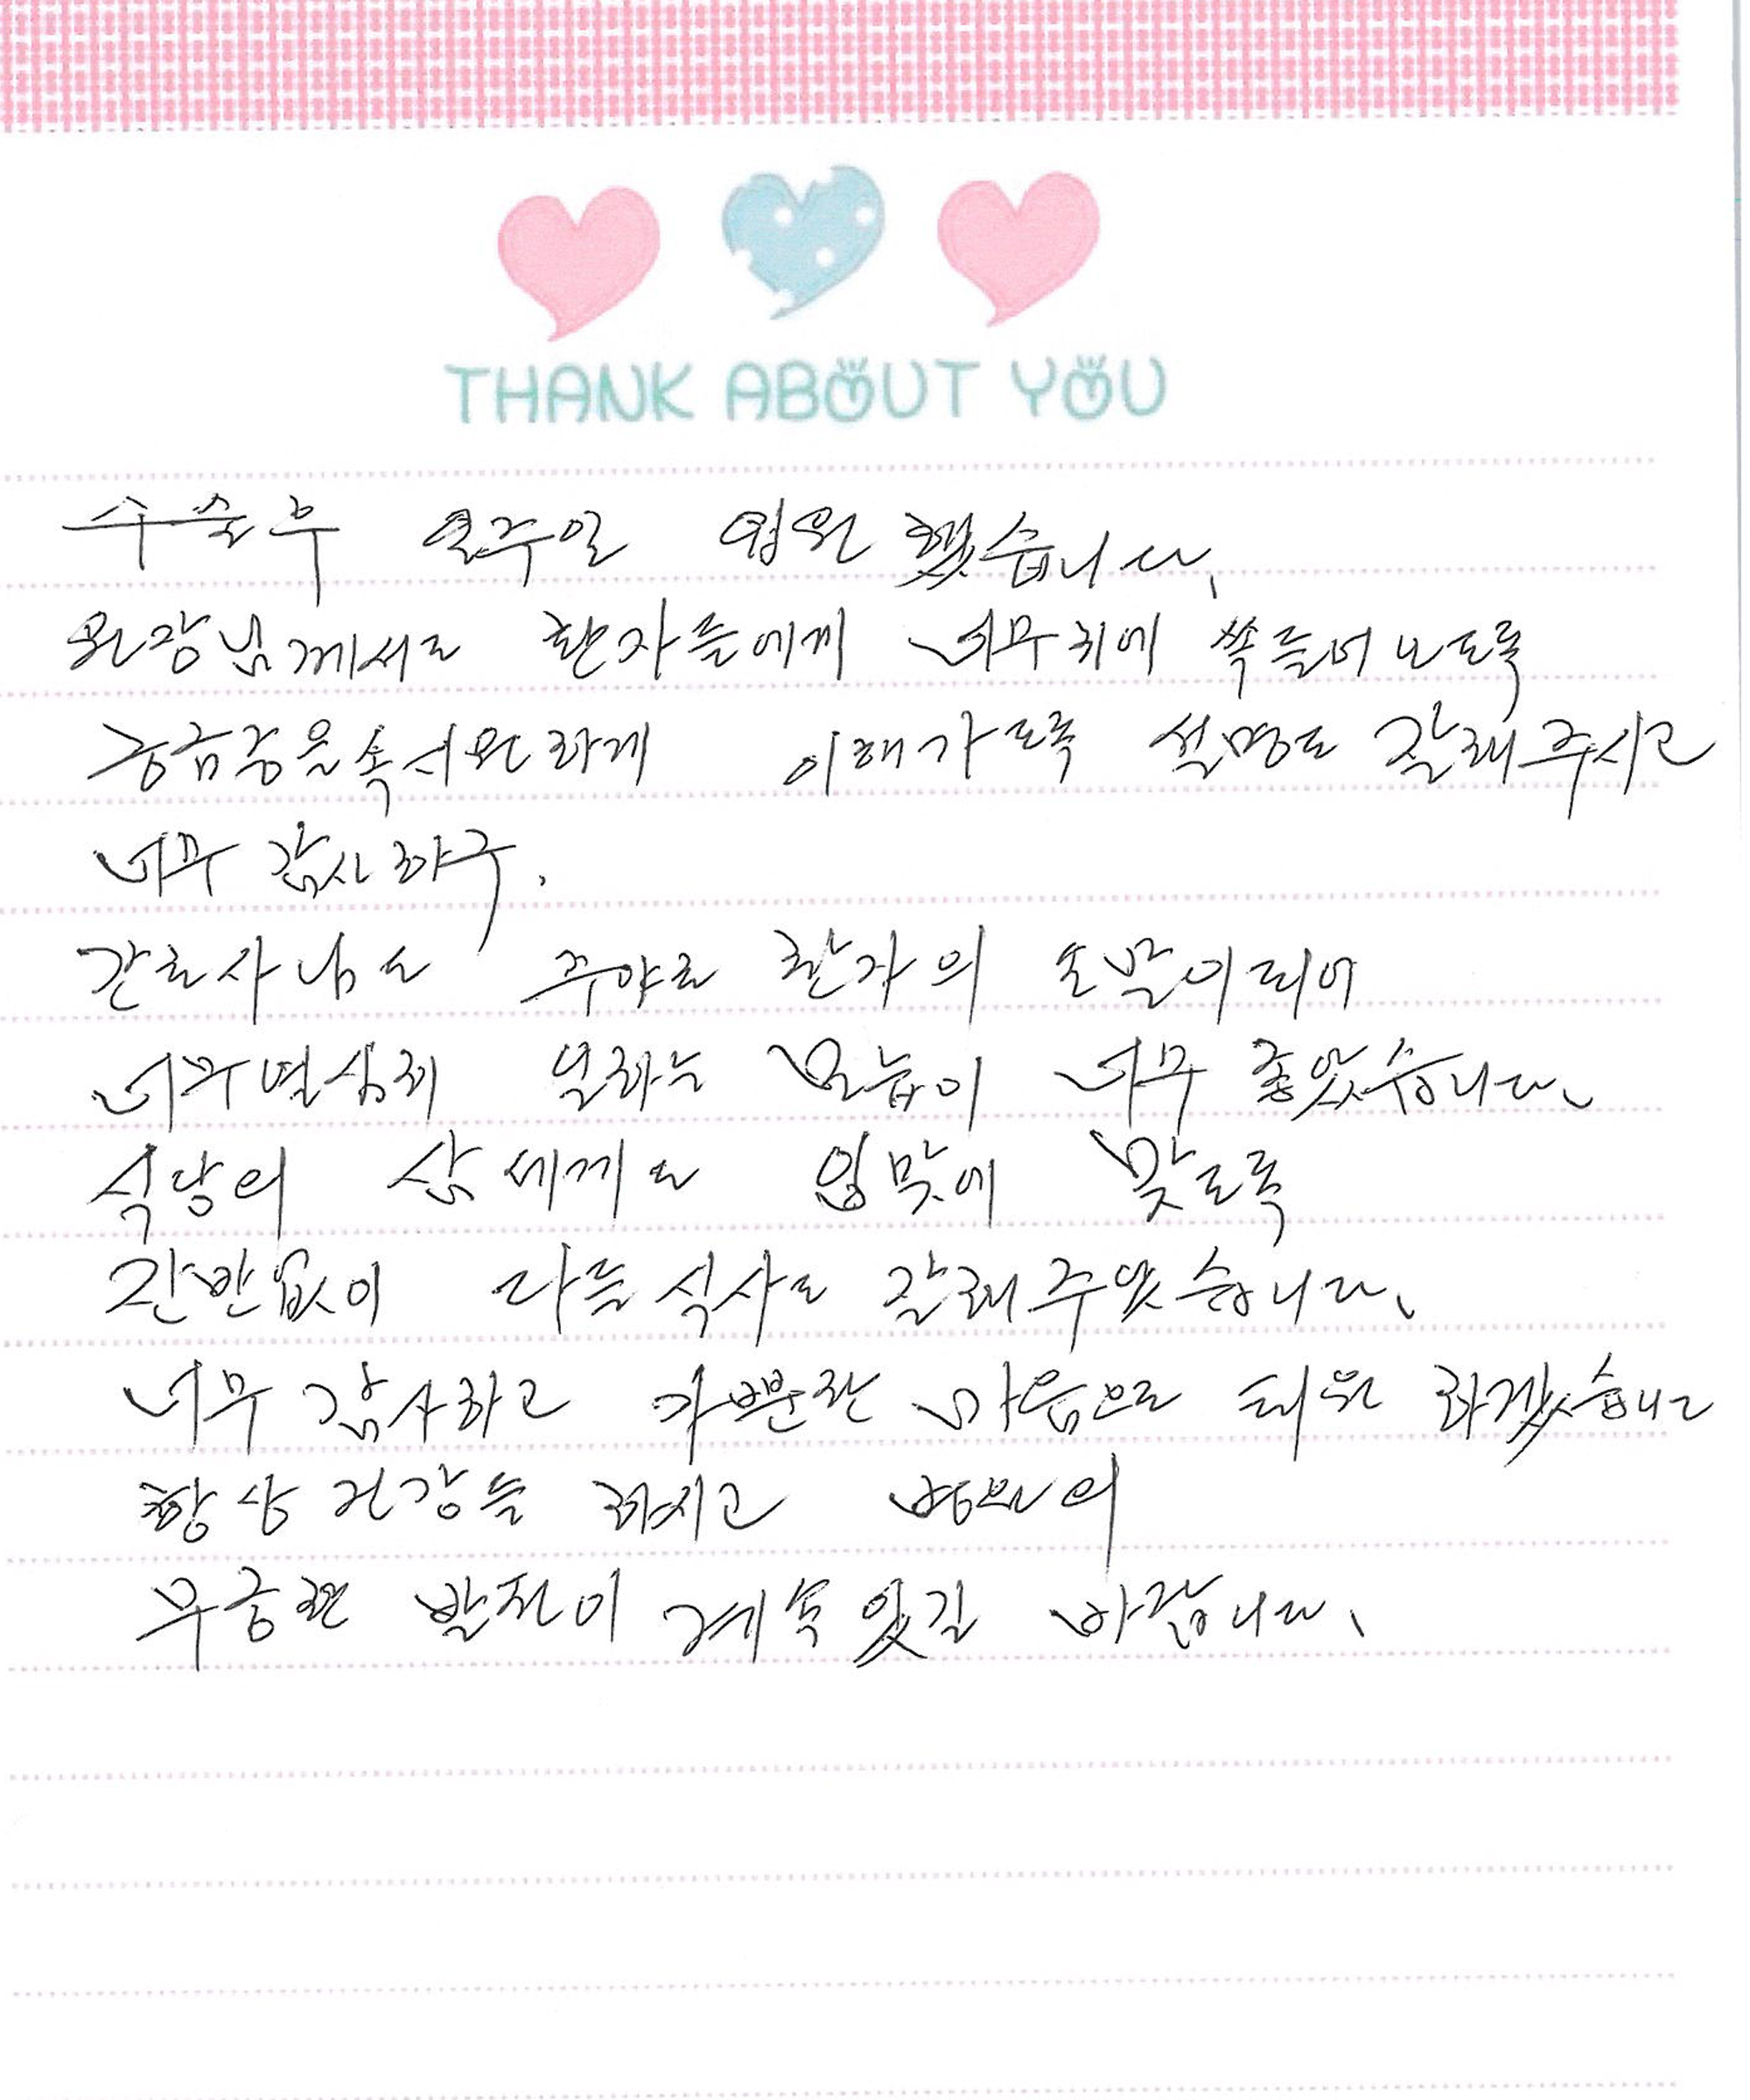 THANK ABOUT YOU
수술후 일주일 입원 했습니다.
원장님께서도 환자들에게 너무귀에 쏙들어 오도록
궁금증을속시원하게 이해가도록 설명도 잘해주시고
너무 감사하구.
간호사님도 주야로 환자의 손발이되어
너무열심히 일하는 모습이 너무 좋았습니다.
식당의 삼세끼도 입맛에 맞도록
잔반없이 다들식사도 잘해주었습니다.
너무 감사하고 가뿐한 마음으로 퇴원 하겠습니다
항상 건강들 하시고 병원의
무궁한 발전이 계속있길 바랍니다.